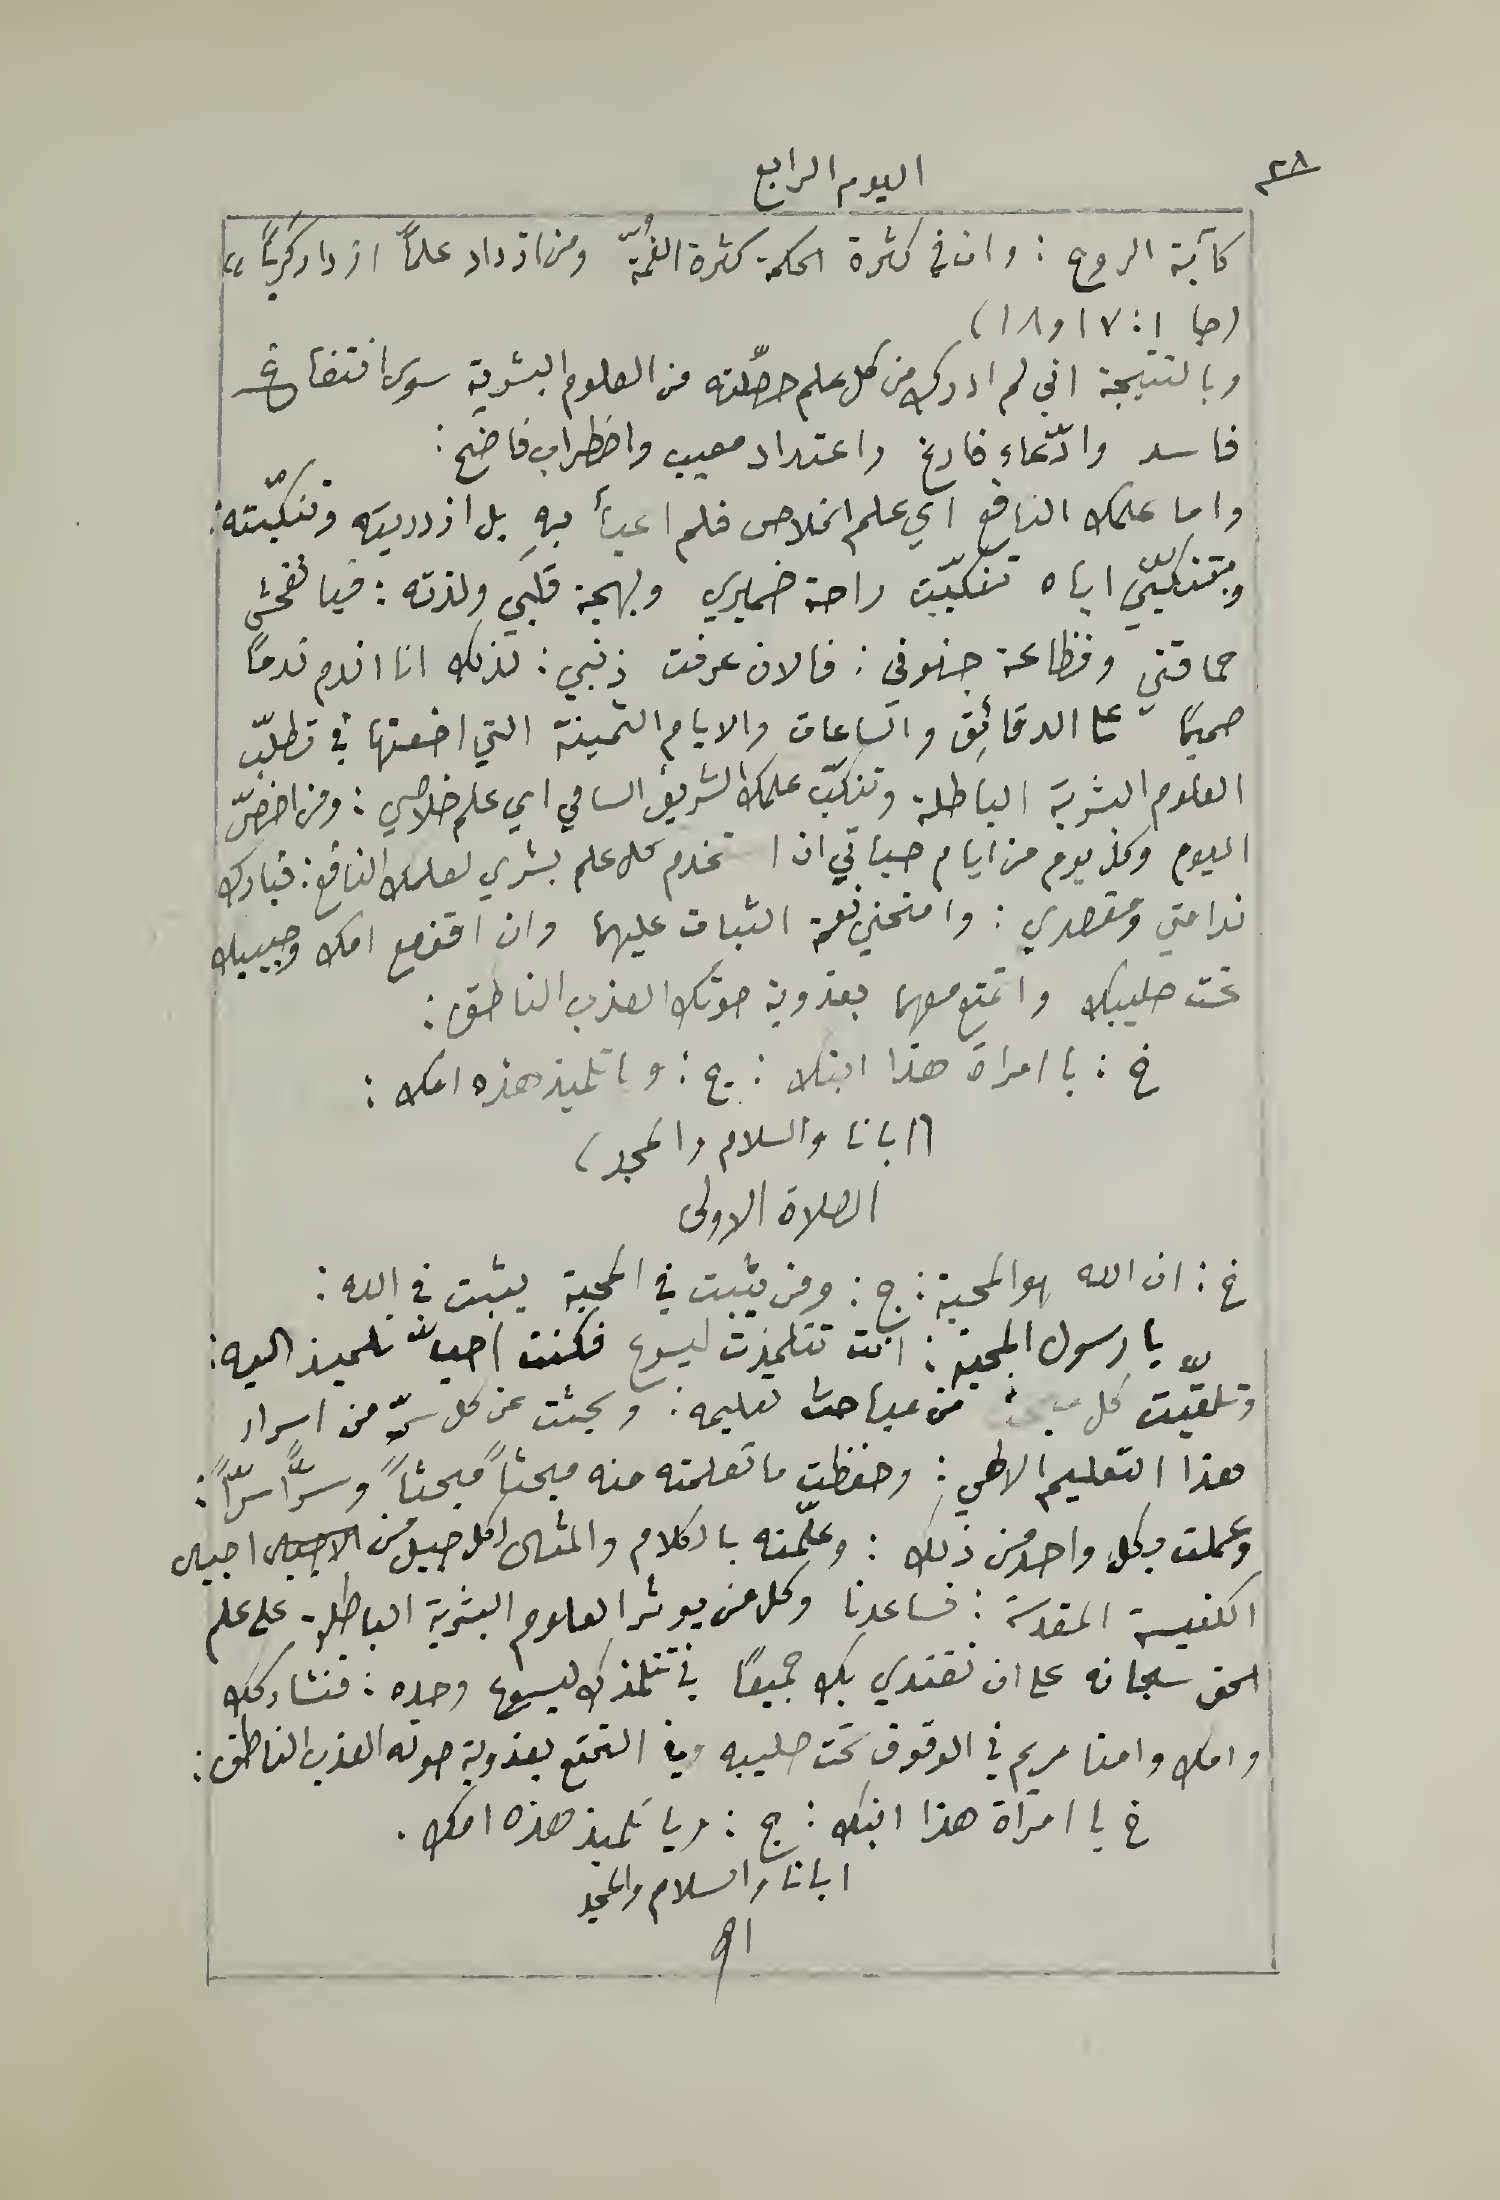 ٢٨
اليوم الرابع
كآبة الروح : وان في كثرة الحكمة كثرة الغمّة ومن ازداد علماً ازداد كرباً »
(جا ١ : ١٧ و ١٨)
وبالنتيجة اني لم ادرك من كل علم حصّلته من العلوم البشرية سوى انتفاخ
فاسد وادّعاء فارغ واعتداد معيب واضطراب فاضح :
واما علمك النافع اي علم الخلاص فلم اعبأ بهِ بل ازدريته وتنكّبته :
وبتنكّبي اياه تنكّبت راحة ضميري وبهجة قلبي ولذته : فيا لفحش
حماقتي وفظاعة جنوني : فالان عرفت ذنبي : لذلك انا اندم ندماً
صميماً على الدقائق والساعات والايام الثمينة التي اضعتها في تطلّب
العلوم البشرية الباطلة وتنكّب علمك الشريف السامي اي علم خلاصي : ومن اخصّ
اليوم وكل يوم من ايام حياتي ان استخدم كل علم بشري لعلمك النافع : فبارك
ندامتي ومقصدي : وامنحني نعمة الثبات عليهما وان اقف مع امك وحبيبك
تحت صليبك واتمتع معهما بعذوبة صوتك العذب الناطق :
خ : يا امراة هذا ابنك : ج : ويا تلميذ هذه امك :
(ابانا والسلام والمجد)
الصلاة الاولى
خ : ان الله هو المحبة : ج : ومن يثبت في المحبة يثبت في الله :
يا رسول المحبة : انت تتلمذت ليسوع فكنت احب تلميذ اليه :
وتلقّيت كل مبحث من مباحث تعليمه : وبحثت عن كل سرّ من اسرار
هذا التعليم الالهي : وحفظت ما تعلمته منه مبحثاً مبحثاً وسرّاً سرّاً :
وعملت بكل واحد من ذلك : وعلّمته بالكلام والمثال لكل جيل من الاجيال اجيال
الكنيسة المقدسة : فساعدنا وكل من يوثر العلوم البشرية الباطلة على علم
الحق سبحانه على ان نقتدي بك جميعاً في تتلمذك ليسوع وحده : فنشاركك
وامك وامنا مريم في الوقوف تحت صليبه وفي التمتع بعذوبة صوته العذب الناطق :
خ يا امرأة هذا ابنك : ج : ويا تلميذ هذه امك .
ابانا والسلام والمجد
٩١